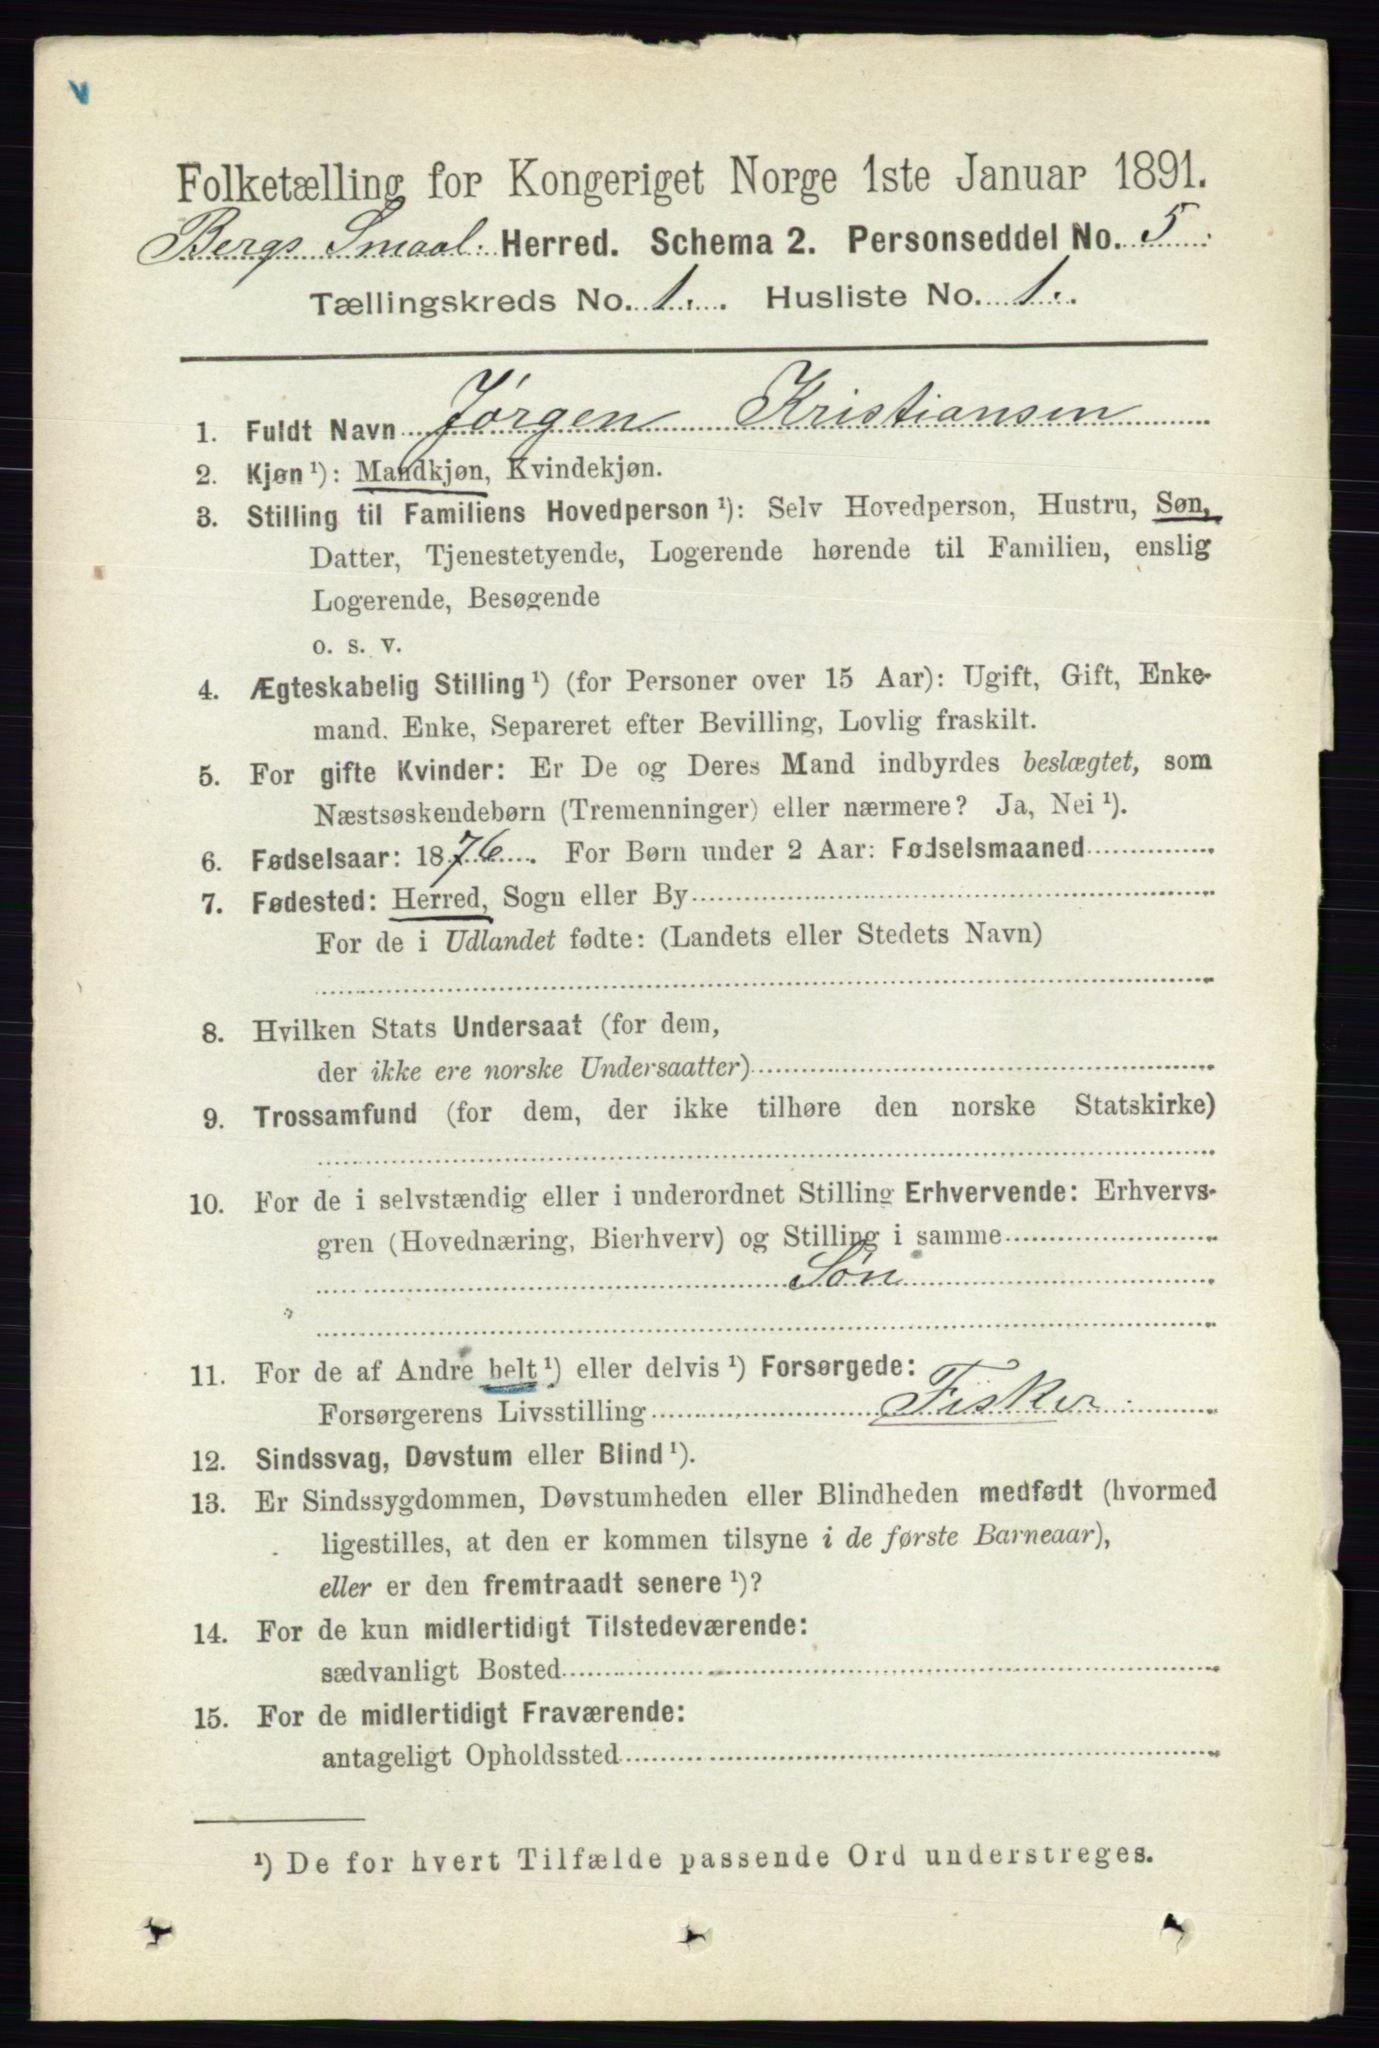 Folketælling for Kongeriget Norge 1ste Januar 1891.
Bergs Smaal. Herred. Schema 2. Personseddel No. 5
Tællingskreds No. 1. Husliste No. 1.
1. Fuldt Navn Jørgen Kristiansen
2. Kjøn ¹): Mandkjøn, Kvindekjøn.
3. Stilling til Familiens Hovedperson ¹): Selv Hovedperson, Hustru, Søn,
Datter, Tjenestetyende, Logerende hørende til Familien, enslig
Logerende, Besøgende
o. s. v.
4. Ægteskabelig Stilling ¹) (for Personer over 15 Aar): Ugift, Gift, Enke-
mand, Enke, Separeret efter Bevilling, Lovlig fraskilt.
5. For gifte Kvinder: Er De og Deres Mand indbyrdes beslægtet, som
Næstsøskendebørn (Tremenninger) eller nærmere? Ja, Nei ¹).
6. Fødselsaar: 1876. For Børn under 2 Aar: Fødselsmaaned
7. Fødested: Herred, Sogn eller By
For de i Udlandet fødte: (Landets eller Stedets Navn)
8. Hvilken Stats Undersaat (for dem,
der ikke ere norske Undersaatter)
9. Trossamfund (for dem, der ikke tilhøre den norske Statskirke)
10. For de i selvstændig eller i underordnet Stilling Erhvervende: Erhvervs-
gren (Hovednæring, Bierhverv) og Stilling i samme
Søn
11. For de af Andre helt ¹) eller delvis ¹) Forsørgede:
Forsørgerens Livsstilling Fisker
12. Sindssvag, Døvstum eller Blind ¹).
13. Er Sindssygdommen, Døvstumheden eller Blindheden medfødt (hvormed
ligestilles, at den er kommen tilsyne i de første Barneaar),
eller er den fremtraadt senere ¹)?
14. For de kun midlertidigt Tilstedeværende:
sædvanligt Bosted
15. For de midlertidigt Fraværende:
antageligt Opholdssted
¹) De for hvert Tilfælde passende Ord understreges.